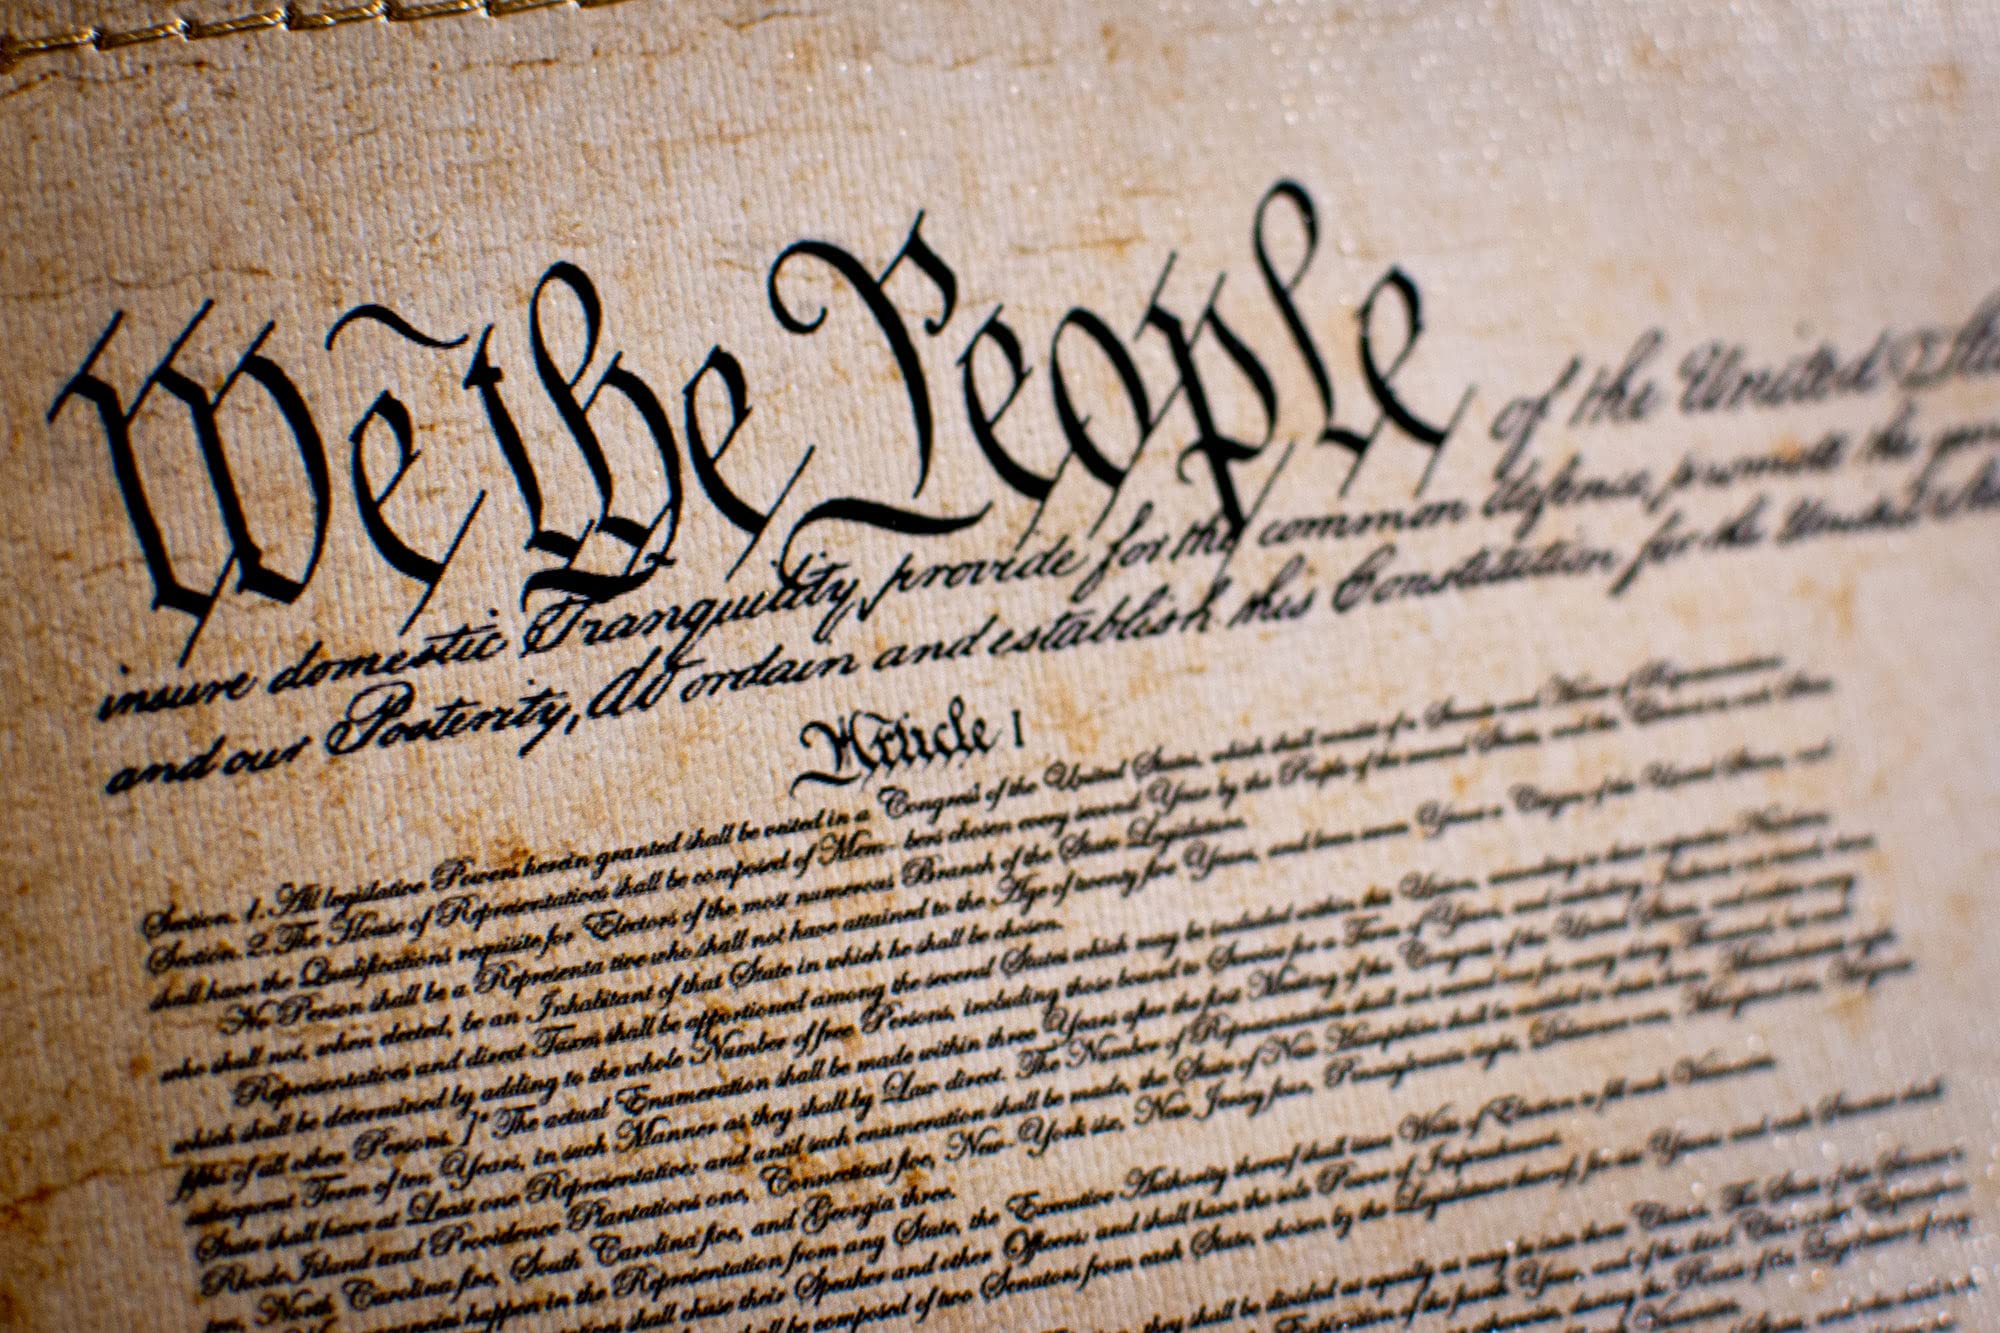 We the People of the United Sta
insure domestic Tranquility, provide for the common defence, promote the gen
and our Posterity, do ordain and establish this Constitution for the United Sta
Article I
Section. 1. All legislative Powers herein granted shall be vested in a Congress of the United States, which shall consist of a Senate and House of Representatives.
Section. 2. The House of Representatives shall be composed of Mem- bers chosen every second Year by the People of the several States, and the Electors in each State
shall have the Qualifications requisite for Electors of the most numerous Branch of the State Legislature.
No Person shall be a Representa tive who shall not have attained to the Age of twenty five Years, and been seven Years a Citizen of the United States, and
who shall not, when elected, be an Inhabitant of that State in which he shall be chosen.
Representatives and direct Taxes shall be apportioned among the several States which may be included within this Union, according to their respective Numbers,
which shall be determined by adding to the whole Number of free Persons, including those bound to Service for a Term of Years, and excluding Indians not taxed, three
fifths of all other Persons. ]* The actual Enumeration shall be made within three Years after the first Meeting of the Congress of the United States, and within every
subsequent Term of ten Years, in such Manner as they shall by Law direct. The Number of Representatives shall not exceed one for every thirty Thousand, but each
State shall have at Least one Representative; and until such enumeration shall be made, the State of New Hampshire shall be entitled to chuse three, Massachusetts eight,
Rhode Island and Providence Plantations one, Connecticut five, New-York six, New Jersey four, Pennsylvania eight, Delaware one, Maryland six, Virginia
ten, North Carolina five, South Carolina five, and Georgia three.
happen in the Representation from any State, the Executive Authority thereof shall issue Writs of Election to fill such Vacancies.
shall chuse their Speaker and other Officers; and shall have the sole Power of Impeachment.
be composed of two Senators from each State, chosen by the Legislature thereof, for six Years; and each Senator shall
they shall be divided as equally as may be into three Classes. The Seats of the Senators
Expiration of the fourth Year, and of the third Class at the Expiration
otherwise, during the Recess of the Legislature of any